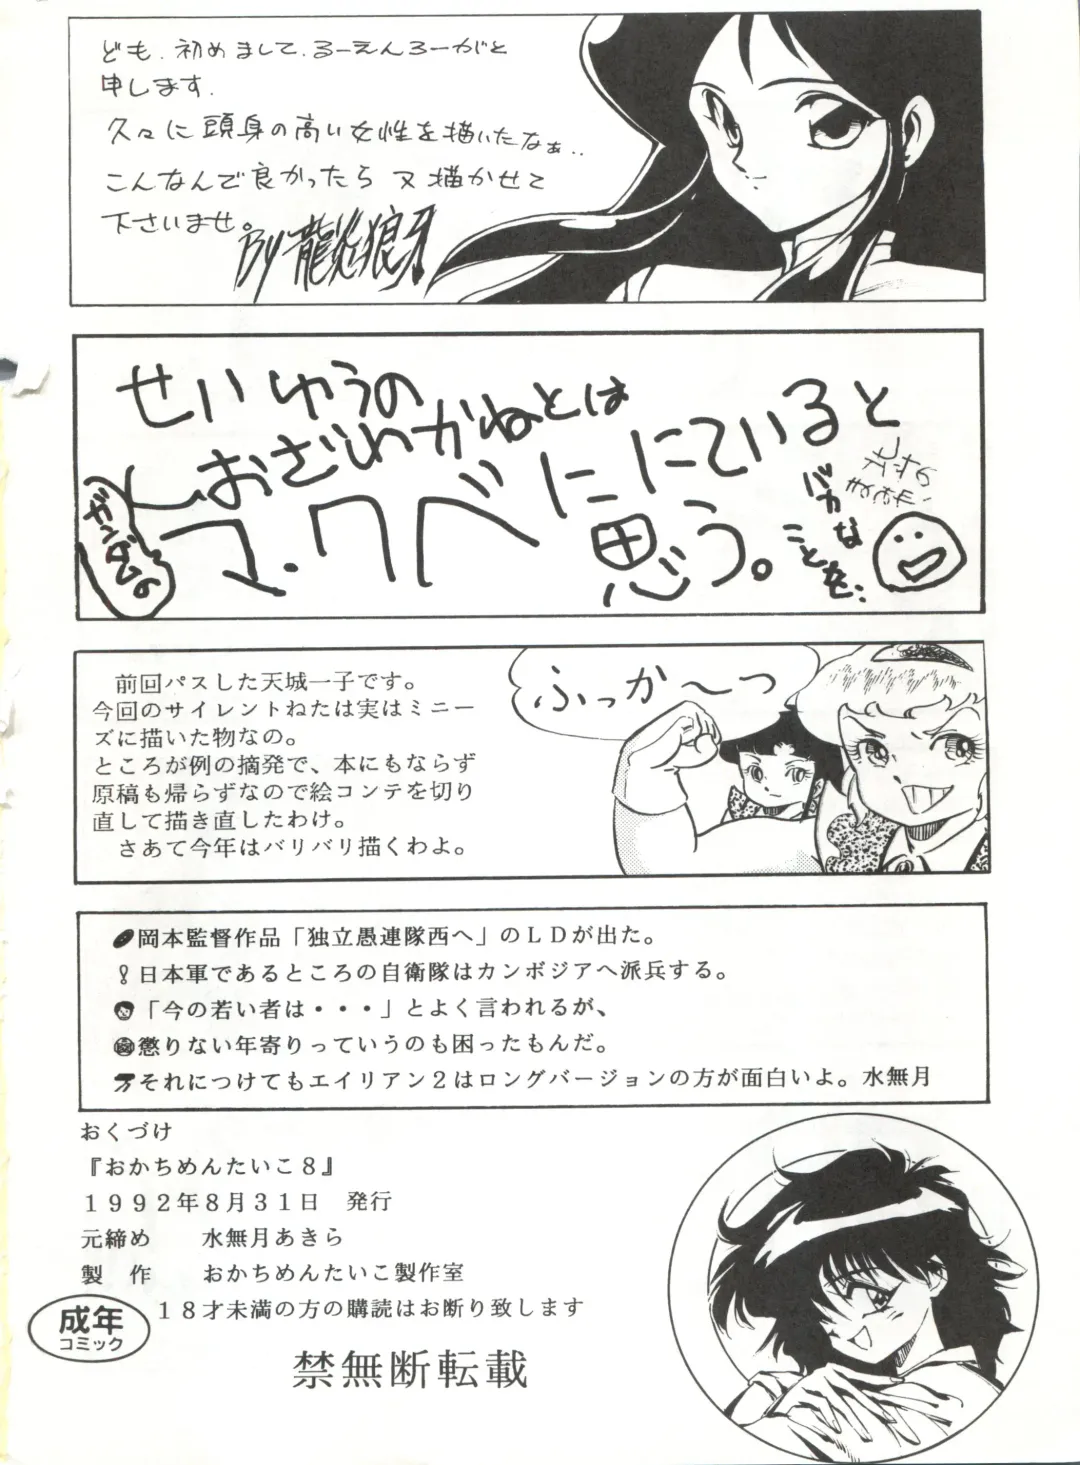 ども、初めまして、るーえんろーがと
申します.
久々に頭身の高い女性を描いたなぁ..
こんなんで良かったら又描かせて
下さいませ。
By 龍炎狼牙
せいゆうの
おざわかねとは
ガンダムの
マ・クベににていると
思う。
バカな
ことを..
ふっか〜っ
前回パスした天城一子です。
今回のサイレントねたは実はミニー
ズに描いた物なの。
ところが例の摘発で、本にもならず
原稿も帰らずなので絵コンテを切り
直して描き直したわけ。
さあて今年はバリバリ描くわよ。
岡本監督作品「独立愚連隊西へ」のＬＤが出た。
！日本軍であるところの自衛隊はカンボジアへ派兵する。
「今の若い者は・・・」とよく言われるが、
懲りない年寄りっていうのも困ったもんだ。
それにつけてもエイリアン２はロングバージョンの方が面白いよ。水無月
おくづけ
『おかちめんたいこ８』
１９９２年８月３１日　発行
元締め　　水無月あきら
製　作　　おかちめんたいこ製作室
１８才未満の方の購読はお断り致します
成年
コミック
禁無断転載